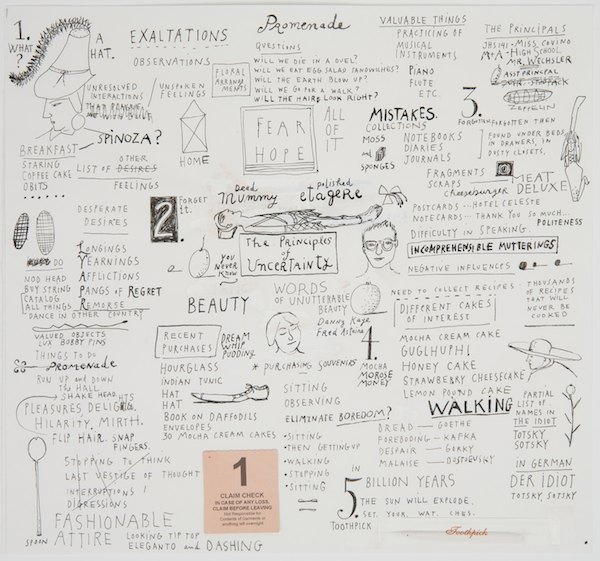 1.
WHAT
?
A
HAT.
UNRESOLVED
INTERACTIONS
THAT PLAGUE
UNSPOKEN
FEELINGS
SPINOZA?
BREAKFAST
STARING
COFFEE CAKE
OBITS
EXALTATIONS
OBSERVATIONS
FLORAL
ARRANGEMENTS
HOME
OTHER
LIST OF DESIRES
FEELINGS
Promenade
QUESTIONS
WILL WE DIE IN A DUEL?
WILL WE EAT EGG SALAD SANDWICHES?
WILL THE EARTH BLOW UP?
WILL WE GO FOR A WALK?
WILL THE HAIRDO LOOK RIGHT?
FEAR
HOPE
ALL
OF
IT
VALUABLE THINGS
PRACTICING OF
MUSICAL
INSTRUMENTS
PIANO
FLUTE
ETC.
MISTAKES.
COLLECTIONS
MOSS
and
SPONGES
NOTEBOOKS
DIARIES
JOURNALS
FRAGMENTS
SCRAPS
THE PRINCIPALS
JHS 141 - MISS COVINO
M+A HIGH SCHOOL
MR. WECHSLER
ASST PRINCIPAL
ZEPPELIN
3.
FORGOTTEN
FORGOTTEN THEN
FOUND UNDER BEDS
IN DRAWERS, IN
DUSTY CLOSETS.
MEAT
DELUXE
Cheeseburger
POSTCARDS ... HOTEL CELESTE
NOTECARDS ... THANK YOU SO MUCH...
POLITENESS
DIFFICULTY IN SPEAKING.
INCOMPREHENSIBLE MUTTERINGS
NEGATIVE INFLUENCES
DESPERATE
DESIRES
2.
FORGET
IT.
Dead
Mummy
polished
etagere
The Principles
of
Uncertainty
YOU
NEVER
KNOW
DO
NOD HEAD
BUY STRING
CATALOG
ALL THINGS
DANCE IN OTHER COUNTRY
LONGINGS
YEARNINGS
AFFLICTIONS
PANGS OF REGRET
REMORSE
VALUED OBJECTS
LUX BOBBY PINS
THINGS TO DO
Promenade
RUN UP AND DOWN
THE HALL
SHAKE HEAD
PLEASURES, DELIGHTS
HILARITY, MIRTH.
FLIP HAIR. SNAP
FINGERS.
STOPPING TO THINK
LAST VESTIGE OF THOUGHT
INTERRUPTIONS /
DIGRESSIONS
FASHIONABLE
ATTIRE
LOOKING TIP TOP
ELEGANTO and DASHING
SPOON
BEAUTY
RECENT
PURCHASES
DREAM
WHIP
PUDDING
HOURGLASS
INDIAN TUNIC
HAT
HAT
BOOK ON DAFFODILS
ENVELOPES
30 MOCHA CREAM CAKES
WORDS
OF UNUTTERABLE
BEAUTY
Danny Kaye
Fred Astaire
* PURCHASING SOUVENIRS
SITTING
OBSERVING
ELIMINATE BOREDOM?
• SITTING
• THEN GETTING UP
• WALKING
• STOPPING
• SITTING
NEED TO COLLECT RECIPES
DIFFERENT CAKES
OF INTEREST
THOUSANDS
OF RECIPES
THAT WILL
NEVER BE
COOKED
4.
MOCHA
MOROSE
MONEY
MOCHA CREAM CAKE
GUGLHUPHI
HONEY CAKE
STRAWBERRY CHEESECAKE
LEMON POUND CAKE
WALKING
BREAD — GOETHE
FOREBODING — KAFKA
DESPAIR — GORKY
MALAISE — DOSTOEVSKY
PARTIAL
LIST OF
NAMES IN
THE IDIOT
TOTSKY
SOTSKY
IN GERMAN
DER IDIOT
TOTSKY, SOTSKY
1
CLAIM CHECK
IN CASE OF ANY LOSS,
CLAIM BEFORE LEAVING
Not Responsible for
Contents of Garments or
anything left overnight
=
5
BILLION YEARS
THE SUN WILL EXPLODE.
TOOTHPICK
Toothpick